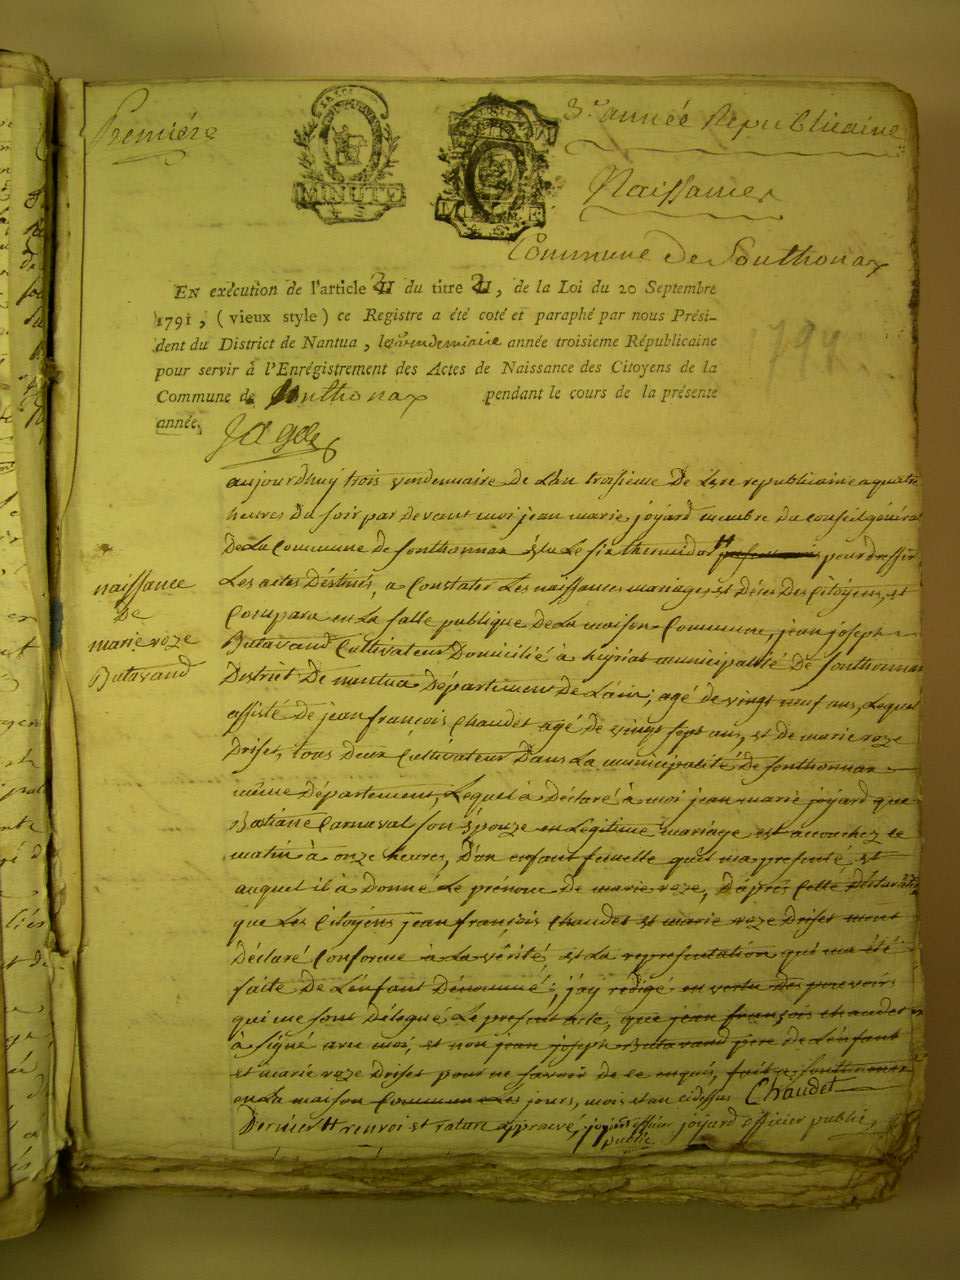 Premiére
3e année Republicaine
MINUTE
Naissances
Commune de Sonthonax
EN exécution de l'article II du titre II, de la Loi du 20 Septembre
1791, (vieux style) ce Registre a été coté et paraphé par nous Prési-
dent du District de Nantua, le vendemiaire année troisieme Républicaine
pour servir à l'Enrégistrement des Actes de Naissance des Citoyens de la
Commune de Sonthonax pendant le cours de la présente
année.
794
aujourdhuy trois vendemiaire de Lan troisieme De Lere republicaine a quatre
heures Du soir par devant moi jean marie joyard membre du Conseil général
De La Commune De Sonthonnax élu Le six thermidor # pour dresser
Les actes Déstinés, a Constater Les naissances mariages et décès Des Citoyens, est
naissance
De
marie roze
Butavand
Comparu en La salle publique De La maison Commune, jean joseph
Butavand Cultivateur Domicilié à heyriat municipalité De Sonthonnax
District De nantua Département De Lain, agé de vingt neuf ans, Lequel
assisté De jean françois Chaudet agé De vingt sept ans, et De marie roze
Driset, tous Deux Cultivateur Dans La municipalité De Sonthonnax
même Département, Lequel à Déclaré à moi jean marie joyard que
Bastiane Carnaval son Épouze en Légitime mariage est accouchez ce
matin à onze heures, D'un enfant femelle qu'il ma presenté et
auquel il à Donné Le prénom De marie roze, D'après Cette Déclaration
que Les Citoyens jean françois Chaudet et marie roze Driset mont
Déclaré Conforme à La vérité, et La representation qui ma été
faite De L'enfant Dénommé, j'ay redigé en vertu Des pouvoirs
qui me sont Délégué Le present acte, que jean françois chaudet
à signé avec moi, et non jean joseph Butavand pere De L'enfant
et marie roze Driset pour ne savoir De ce enquis, fait a Sonthonnax
en La maison Commune Les jours, mois et an cidessus Chaudet
Dernier # renvoi et rature approuvé, joyard officier publi
public